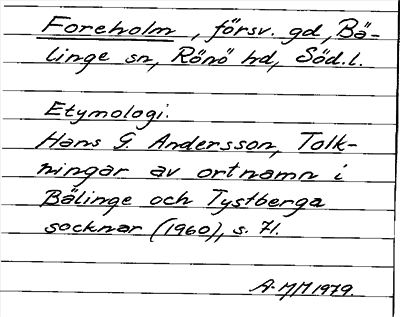 Foreholm, försv. gd, Bä-
linge sn, Rönö hd, Söd.l.
Etymologi:
Hans G. Andersson, Tolk-
ningar av ortnamn i
Bälinge och Tystberga
socknar (1960), s. 71.
A. M/M 1979.